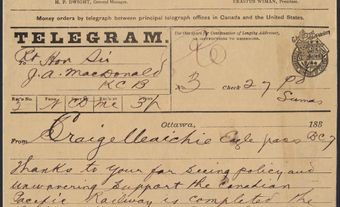 H. P. DWIGHT, General Manager. ERASTUS WIMAN, President.
Money orders by telegraph between principal telegraph offices in Canada and the United States.
TELEGRAM.
Rt Hon Sir
J. A. MacDonald
K C B
3 Check 27 Pd
Ottawa, 188
From Craigellachie Eagle pass BC 7
Thanks to your far seeing policy and
unwavering support the Canadian
Pacific Railway is completed the